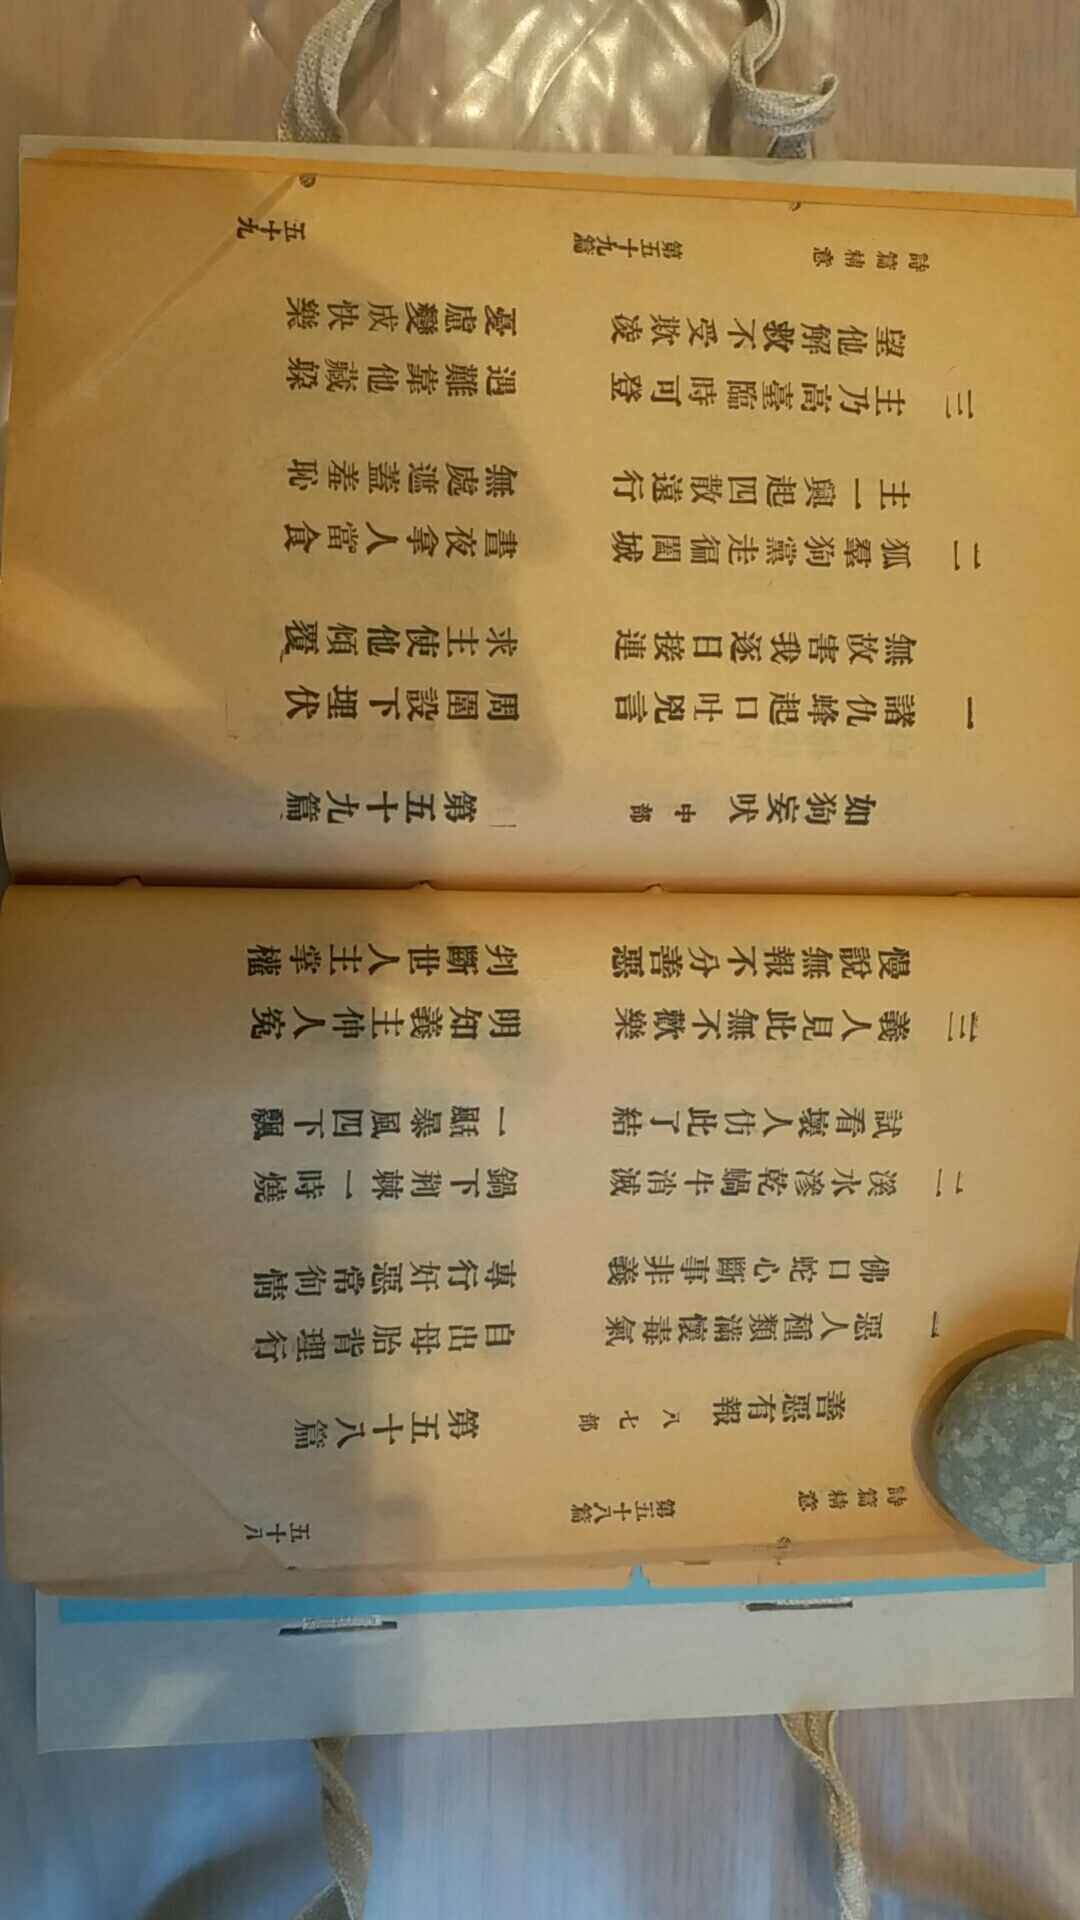 詩篇精意 第五十八篇 五十八
善惡有報 八七部 第五十八篇
一 惡人種類滿懷毒氣 自出母胎背理行
佛口蛇心斷事非義 專行奸惡常徇情
二 溪水滲乾蝸牛消滅 鍋下荊棘一時燒
試看壞人仿此了結 一颳暴風四下飄
三 義人見此無不歡樂 明知義主伸人冤
慢說無報不分善惡 判斷世人主掌權
如狗妄吠 中部 第五十九篇
一 諸仇蜂起口吐兇言 周圍設下埋伏
無故害我逐日接連 求主使他傾覆
二 狐羣狗黨走徧闔城 晝夜拿人當食
主一興起四散遠行 無處遮蓋羞恥
三 主乃高臺臨時可登 遇難靠他藏躲
望他解救不受欺凌 憂慮變成快樂
詩篇精意 第五十九篇 五十九